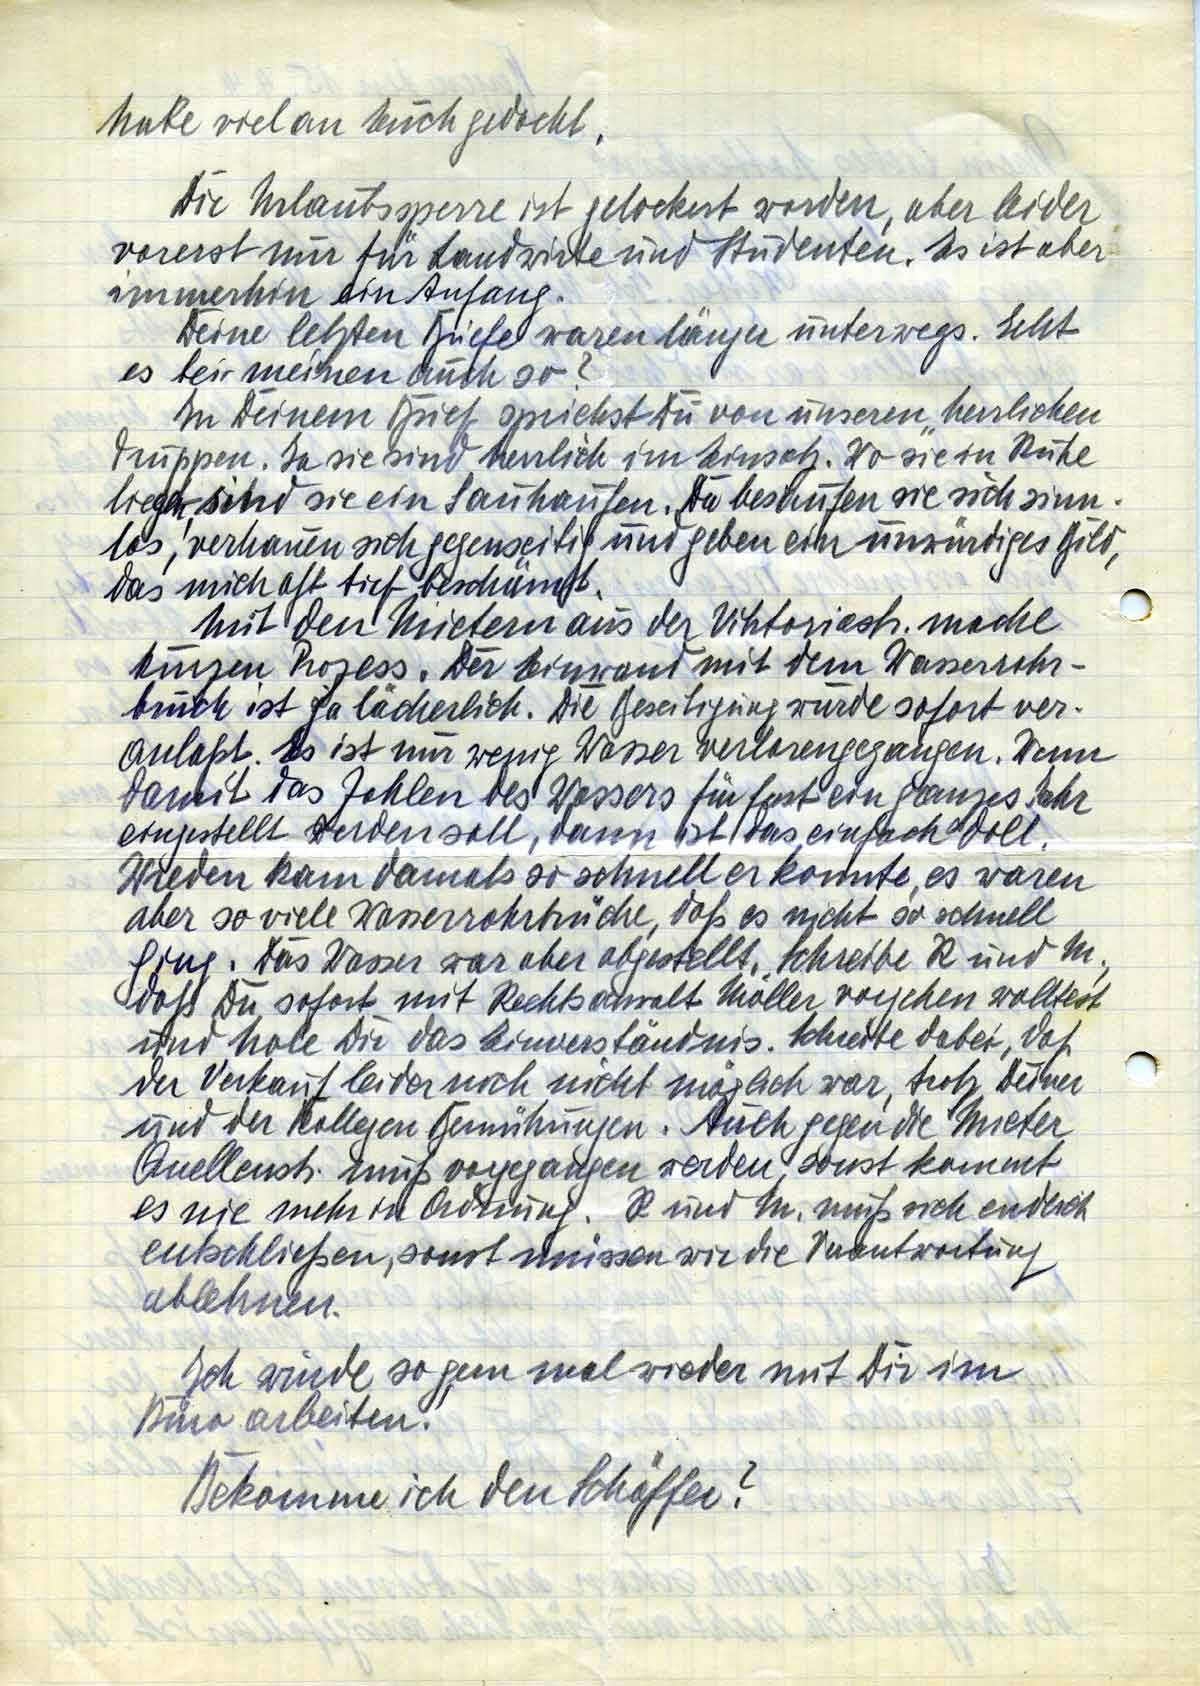 habe viel an Euch gedacht.
Die Urlaubssperre ist gelockert worden, aber leider
vorerst nur für Landwirte und Studenten. Es ist aber
immerhin ein Anfang.
Deine letzten Briefe waren länger unterwegs. Geht
es bei meinen auch so?
In Deinem Brief sprichst Du von unseren "herrlichen
Truppen. Ja sie sind herrlich im Einsatz. Wo sie in Ruhe
liegen, sind sie ein Sauhaufen. Da besaufen sie sich sinn-
los, verhauen sich gegenseitig und geben ein unwürdiges Bild,
das mich oft tief beschämt.
Mit den Mietern aus der Viktoriastr. mache
kurzen Prozess. Der Einwand mit dem Wasserrohr-
bruch ist ja lächerlich. Die Beseitigung wurde sofort ver-
anlaßt. Es ist nur wenig Wasser verlorengegangen. Wenn
damit das Zahlen des Wassers für fast ein ganzes Jahr
eingestellt werden soll, dann ist das einfach doll.
Wieden kam damals so schnell er konnte, es waren
aber so viele Wasserrohrbrüche, daß es nicht so schnell
ging. Das Wasser war aber abgestellt. Schreibe R und M.,
daß Du sofort mit Rechtsanwalt Möller vorgehen wolltest
und hole Dir das Einverständnis. Schreibe dabei, daß
der Verkauf leider noch nicht möglich war, trotz Deiner
und der Kollegen Bemühungen. Auch gegen die Mieter
Quellenstr. muß vorgegangen werden, sonst kommt
es nie mehr in Ordnung. R und M. muß sich endlich
entschließen, sonst müssen wir die Verantwortung
ablehnen.
Ich würde so gern mal wieder mit Dir im
Büro arbeiten.
Bekomme ich den Schöffer?